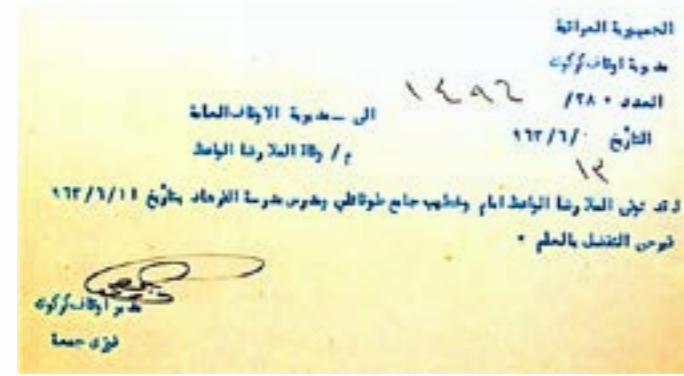 الجمهورية العراقية
مديرية اوقاف كركوك
العدد ٢٨٠/ ١٤٩٢
التاريخ ٩٦٣/٦/
١٣
الى _ مديرية الاوقاف العامة
م/ وفاة الملا رضا الواعظ
لقد توفى الملا رضا الواعظ امام وخطيب جامع طوقاتلي ومدرس مدرسة الفرهاد بتاريخ ٩٦٣/٦/١١
فيرجى التفضل بالعلم ٠
مدير اوقاف كركوك
فوزى جمعة